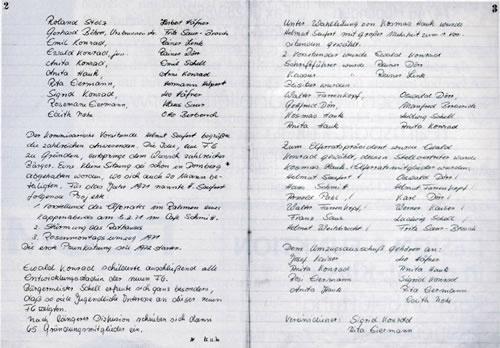 2
Roland Stolz
Herbert Häfner
Gerhard Bähr,
Fritz Saur-Brosch
Emil Konrad,
Rainer Link
Ewald Konrad, jun.
Rainer Dörr
Anita Konrad,
Emil Schell
Anita Hauk,
Arno Konrad
Rita Eiermann
Hermann
Sigrid Konrad,
Ivo Häfner
Rosemarie Eiermann,
Klaus Saur
Edith Nohe
Otto Berberich
Der kommissarische Vorsitzende Helmut Seufert begrüßte
die zahlreichen Anwesenden. Die Idee, eine FG
zu Gründen, entspringe dem Wunsch zahlreicher
Bürger. Eine kleine Sitzung sei schon in Dornberg *
abgehalten worden, wo sich auch 20 Mann be-
teiligten. Für das Jahr 1971 nannte H. Seufert
folgende Projekte
1. Vorstellung des Elferrates im Rahmen eines
Kappenabends am 5.2.71 im Café Schmitt.
2. Stürmung des Rathauses
3. Rosenmontagsumzug 1971
Die erste Prunksitzung soll 1972 starten.
Ewald Konrad schilderte anschließend alle
Entwicklungsstadien der neuen FG.
Bürgermeister Schell erfreute sich ganz besonders,
daß so viele Jugendliche Interesse an dieser neuen
FG zeigten.
Nach längerer Diskusion schrieben sich dann
65 Gründungsmitglieder ein.
3
Unter Wahlleitung von Kosmas Hauk wurde
Helmut Seufert mit großer Mehrheit zum 1. Vor-
sitzenden gewählt.
2. Vorsitzender wurde Ewald Konrad
Schriftführer wurde Rainer Dörr
Kassier " Rainer Link
Beisitzer wurden
Walter Farrenkopf,
Oswald Dörr,
Gottfried Dörr,
Manfred Berberich
Kosmas Hauk
Hedwig Schell
Anita Hauk
Anita Konrad
Zum Elferratspräsident wurde Ewald
Konrad gewählt, dessen Stellvertreter wurde
Kosmas Hauk. Elferratsmitglieder wurden:
Helmut Seufert
Oswald Dörr
Hans Schmitt
Helmut Farrenkopf
Arnold
Karl Dörr
Walter Farrenkopf
Werner Kaiser
Franz Saur
Ludwig Schell
Helmut Weinbrecht
Fritz Saur-Brosch
Dem Umzugsausschuß gehören an:
Josef Kaiser
Ivo Häfner
Anita Konrad
Anita Hauk
Rosi Eiermann
Sigrid Konrad
Anita Hauk
Rita Eiermann
Edith Nohe
Vereinsdiener: Sigrid Konrad
Rita Eiermann